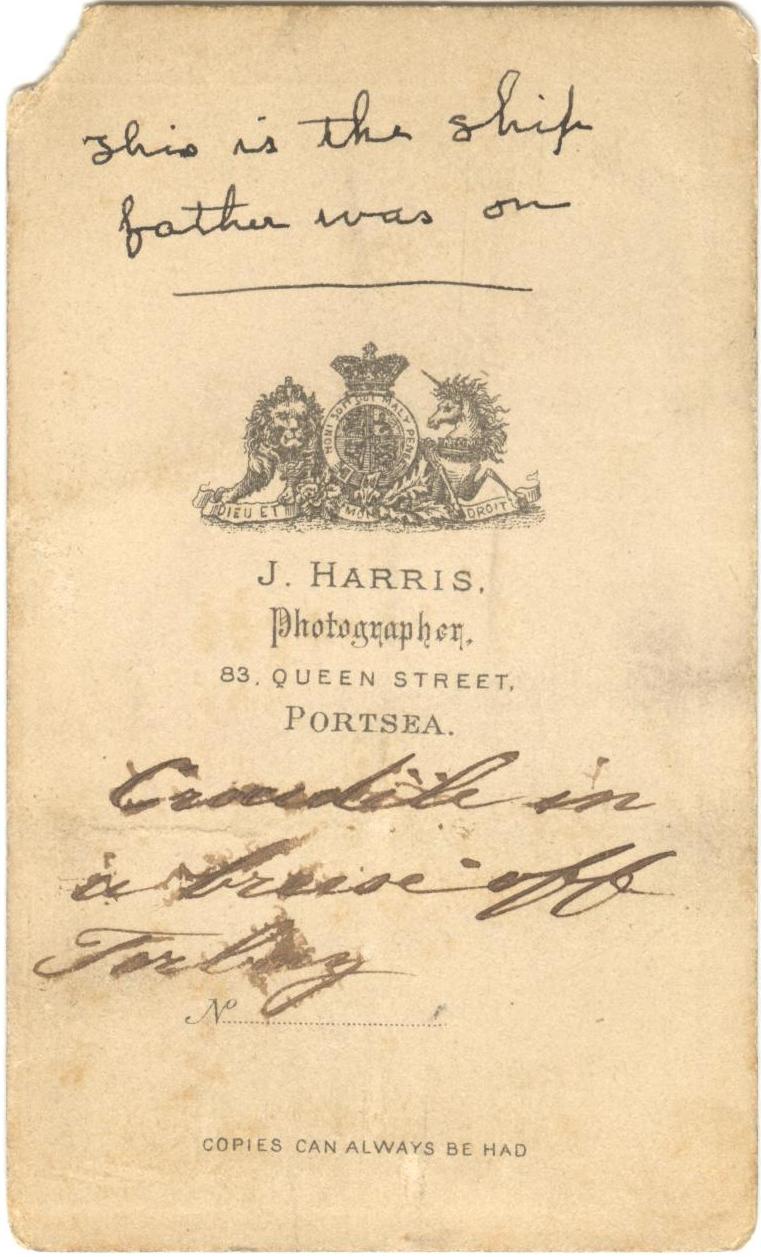 This is the ship
father was on
HONI SOIT QUI MAL Y PENSE
DIEU ET MON DROIT
J. HARRIS,
Photographer,
83, QUEEN STREET,
PORTSEA.
Crocodile in
a breese off
Torbay
No
COPIES CAN ALWAYS BE HAD